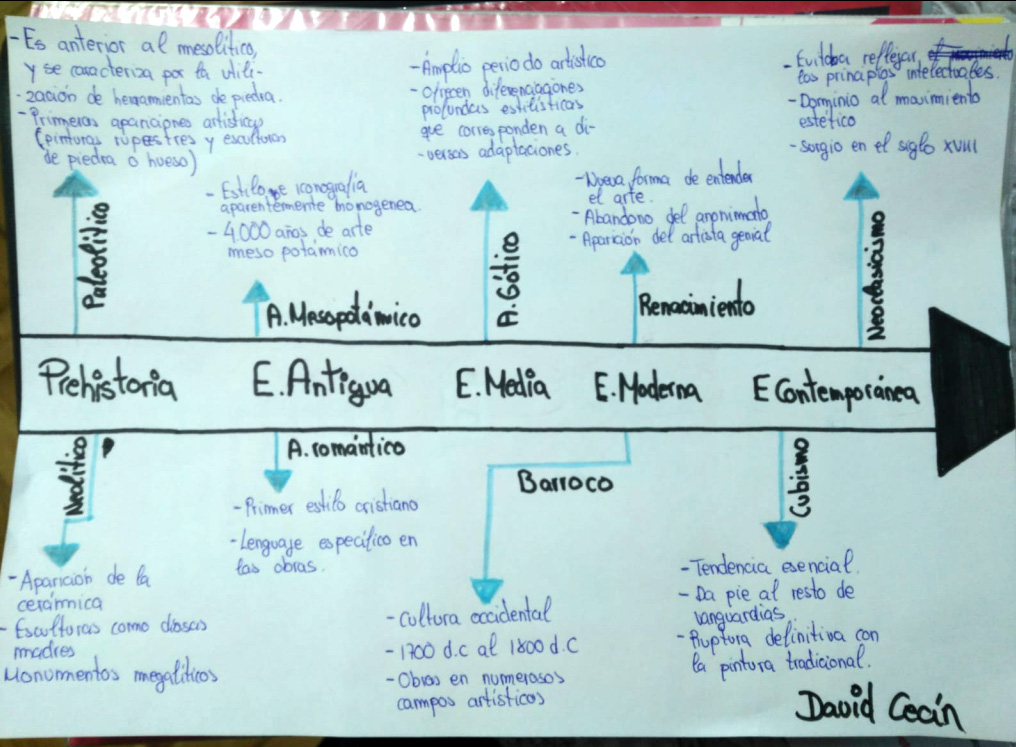 -Es anterior al mesolítico,
y se caracteriza por la utili-
-zación de herramientas de piedra.
-Primeras apariciones artísticas
(pinturas rupestres y esculturas
de piedra o hueso)
Paleolítico
-Estilo e iconografía
aparentemente homogenea.
-4.000 años de arte
meso potámico
A.Mesopotámico
-Ámplio periodo artístico
-Ofrecen diferenciaciones
profundas estilísticas
que corresponden a di-
-versas adaptaciones.
A.Gótico
-Nueva forma de entender
el arte.
-Abandono del anonimato
-Aparición del artista genial
Renacimiento
-Evitaba reflejar
los principios intelectuales.
-Dominio al movimiento
estético
-Surgio en el siglo XVIII
Neoclasicismo
Prehistoria
E.Antigua
E.Media
E.Moderna
E Contemporánea
Neolítico
-Aparición de la
cerámica
-Esculturas como diosas
madres
Monumentos megalíticos
A.romántico
-Primer estilo cristiano
-Lenguaje específico en
las obras.
Barroco
-Cultura occidental
-1700 d.c al 1800 d.C
-Obras en numerosos
campos artísticos
Cubismo
-Tendencia esencial.
-Da pie al resto de
vanguardias.
-Ruptura definitiva con
la pintura tradicional.
David Cecín